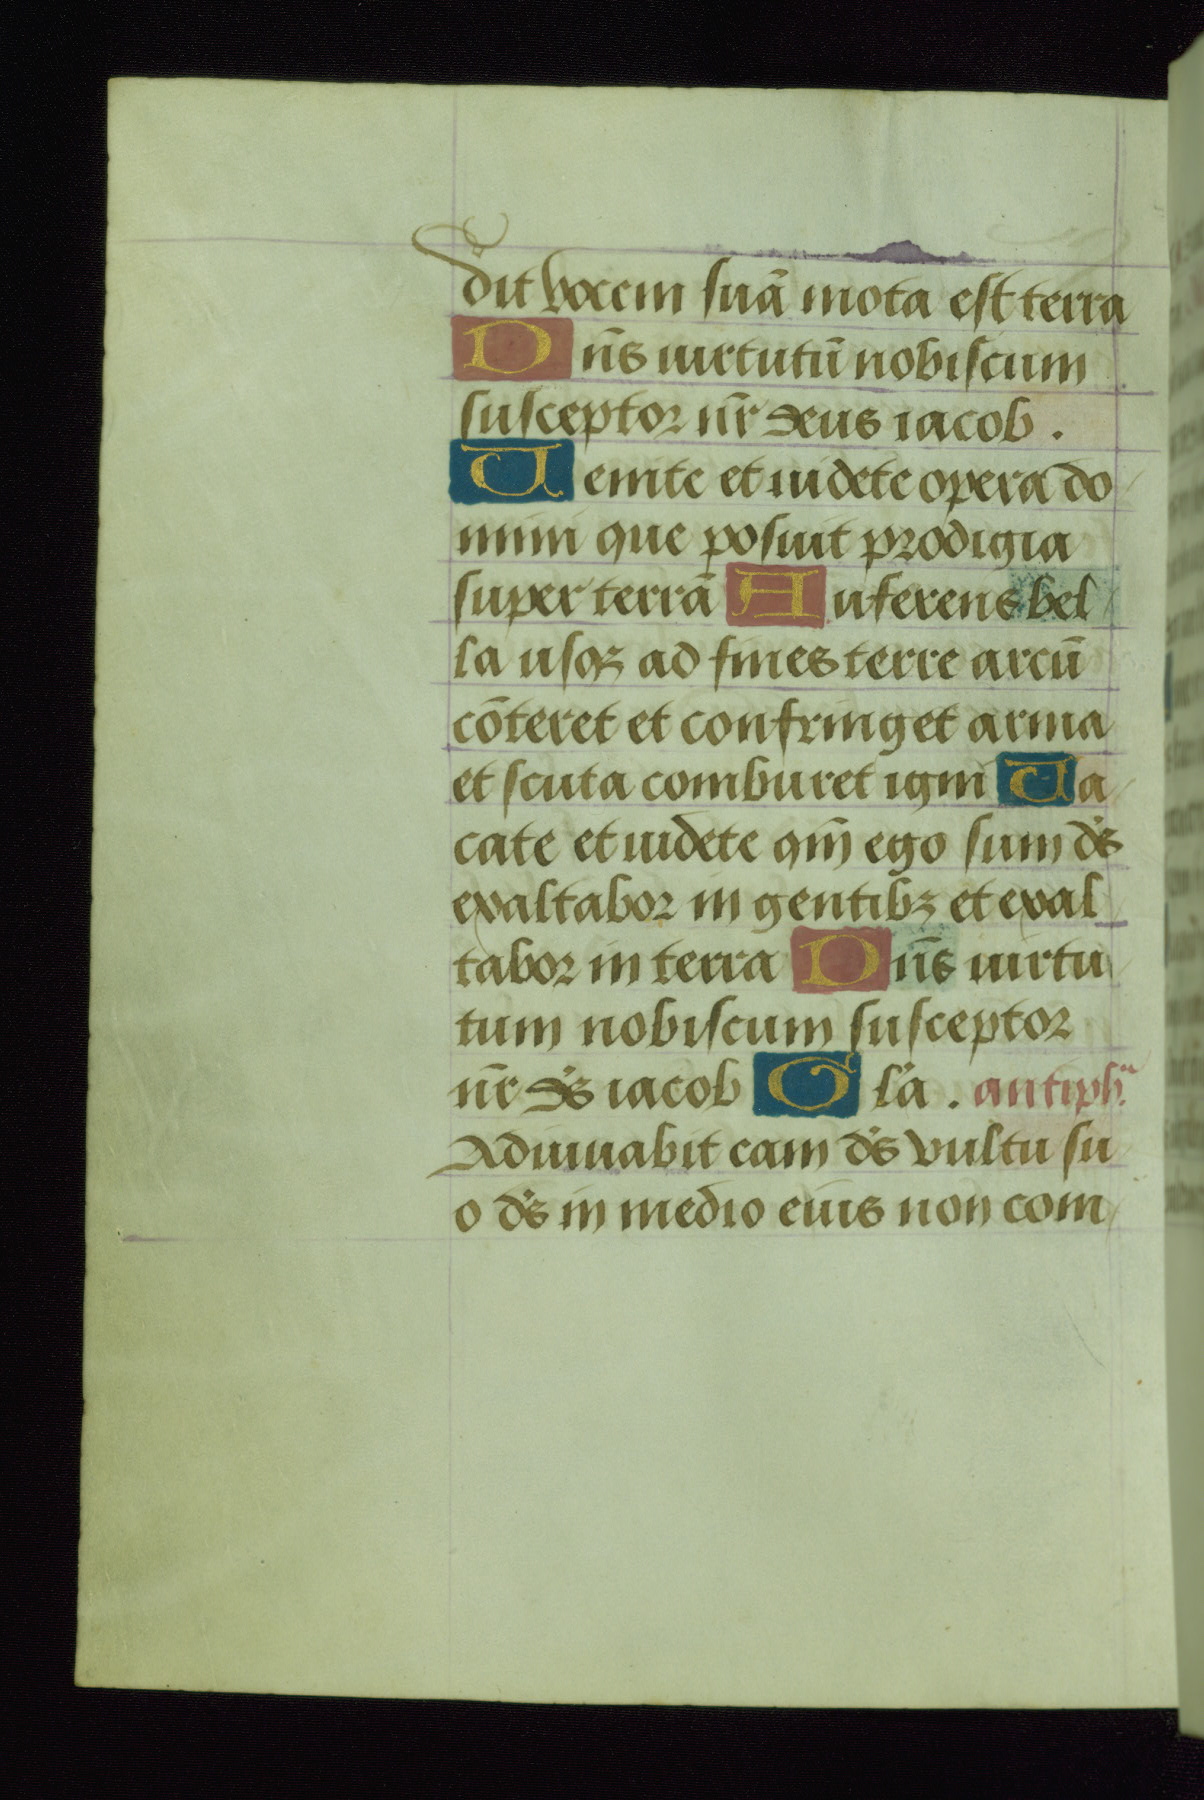 dit vocem suā mota est terra
Dn̄s uirtutū nobiscum
susceptor nr̄ deus iacob .
Uenite et uidete opera do
mini que posuit prodigia
super terrā Auferens bel
la usqꝫ ad fines terre arcū
cōteret et confringet arma
et scuta comburet igni Ua
cate et uidete qm̄ ego sum ds̄
exaltabor in gentibꝫ et exal
tabor in terra Dn̄s uirtu
tum nobiscum susceptor
nr̄ ds̄ iacob Gl'a . antiph.
Adiuuabit eam ds̄ vultu su
o ds̄ in medio eius non com